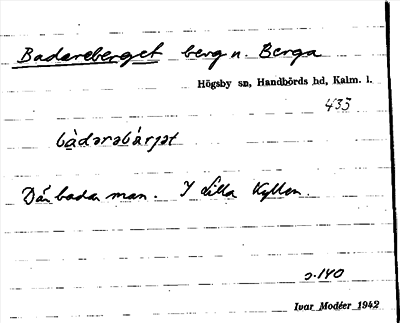 Badareberget berg n. Berga
Högsby sn, Handbörds hd, Kalm. l.
433
bàdərəbárjət
Där badar man. I Lilla Kyllen.
s. 140
Ivar Modéer 1942